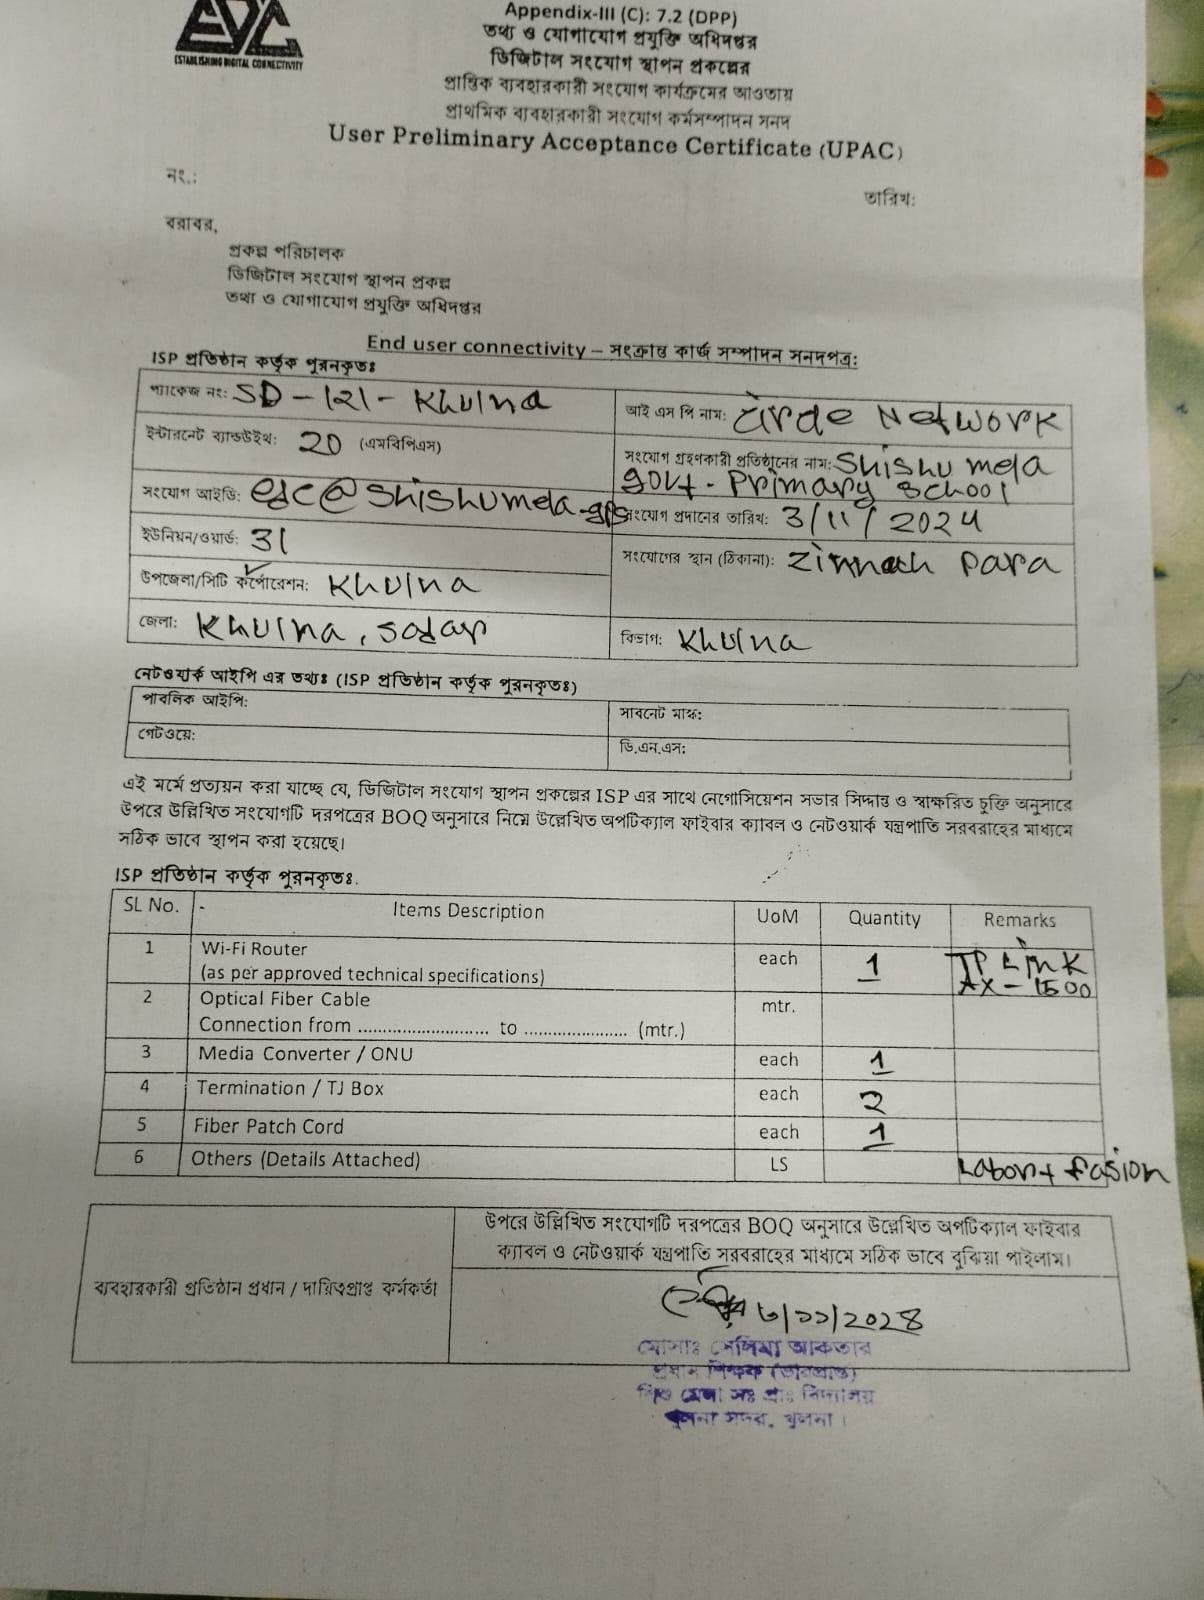 EDC
ESTABLISHING DIGITAL CONNECTIVITY
Appendix-III (C): 7.2 (DPP)
তথ্য ও যোগাযোগ প্রযুক্তি অধিদপ্তর
ডিজিটাল সংযোগ স্থাপন প্রকল্পের
প্রান্তিক ব্যবহারকারী সংযোগ কার্যক্রমের আওতায়
প্রাথমিক ব্যবহারকারী সংযোগ কর্মসম্পাদন সনদ
User Preliminary Acceptance Certificate (UPAC)
নং.:
তারিখ:
বরাবর,
প্রকল্প পরিচালক
ডিজিটাল সংযোগ স্থাপন প্রকল্প
তথ্য ও যোগাযোগ প্রযুক্তি অধিদপ্তর
End user connectivity – সংক্রান্ত কার্জ সম্পাদন সনদপত্র:
ISP প্রতিষ্ঠান কর্তৃক পূরনকৃতঃ
প্যাকেজ নং: SD-121-Khulna
আই এস পি নাম: Circle Network
ইন্টারনেট ব্যান্ডউইথ: 20 (এমবিপিএস)
সংযোগ গ্রহণকারী প্রতিষ্ঠানের নাম: Shishu mela
govt. Primary School
সংযোগ আইডি: edc@shishumela.gps
সংযোগ প্রদানের তারিখ: 3/11/2024
ইউনিয়ন/ওয়ার্ড: 31
সংযোগের স্থান (ঠিকানা): Zinnah Para
উপজেলা/সিটি কর্পোরেশন: Khulna
জেলা: Khulna, sadar
বিভাগ: Khulna
নেটওয়ার্ক আইপি এর তথ্যঃ (ISP প্রতিষ্ঠান কর্তৃক পূরনকৃতঃ)
পাবলিক আইপি:
সাবনেট মাস্ক:
গেটওয়ে:
ডি.এন.এস:
এই মর্মে প্রত্যয়ন করা যাচ্ছে যে, ডিজিটাল সংযোগ স্থাপন প্রকল্পের ISP এর সাথে নেগোসিয়েশন সভার সিদ্দান্ত ও স্বাক্ষরিত চুক্তি অনুসারে
উপরে উল্লিখিত সংযোগটি দরপত্রের BOQ অনুসারে নিম্নে উল্লেখিত অপটিক্যাল ফাইবার ক্যাবল ও নেটওয়ার্ক যন্ত্রপাতি সরবরাহের মাধ্যমে
সঠিক ভাবে স্থাপন করা হয়েছে।
ISP প্রতিষ্ঠান কর্তৃক পূরনকৃতঃ.
SL No. Items Description UoM Quantity Remarks
1 Wi-Fi Router each 1 TP Link
(as per approved technical specifications) AX-1500
2 Optical Fiber Cable mtr.
Connection from ........................... to ...................... (mtr.)
3 Media Converter / ONU each 1
4 Termination / TJ Box each 2
5 Fiber Patch Cord each 1
6 Others (Details Attached) LS Labor+fusion
উপরে উল্লিখিত সংযোগটি দরপত্রের BOQ অনুসারে উল্লেখিত অপটিক্যাল ফাইবার
ক্যাবল ও নেটওয়ার্ক যন্ত্রপাতি সরবরাহের মাধ্যমে সঠিক ভাবে বুঝিয়া পাইলাম।
ব্যবহারকারী প্রতিষ্ঠান প্রধান / দায়িত্বপ্রাপ্ত কর্মকর্তা
৩/১১/২০২৪
মোসাঃ সেলিমা আকতার
প্রধান শিক্ষক (ভারপ্রাপ্ত)
শিশু মেলা সঃ প্রাঃ বিদ্যালয়
খুলনা সদর, খুলনা।